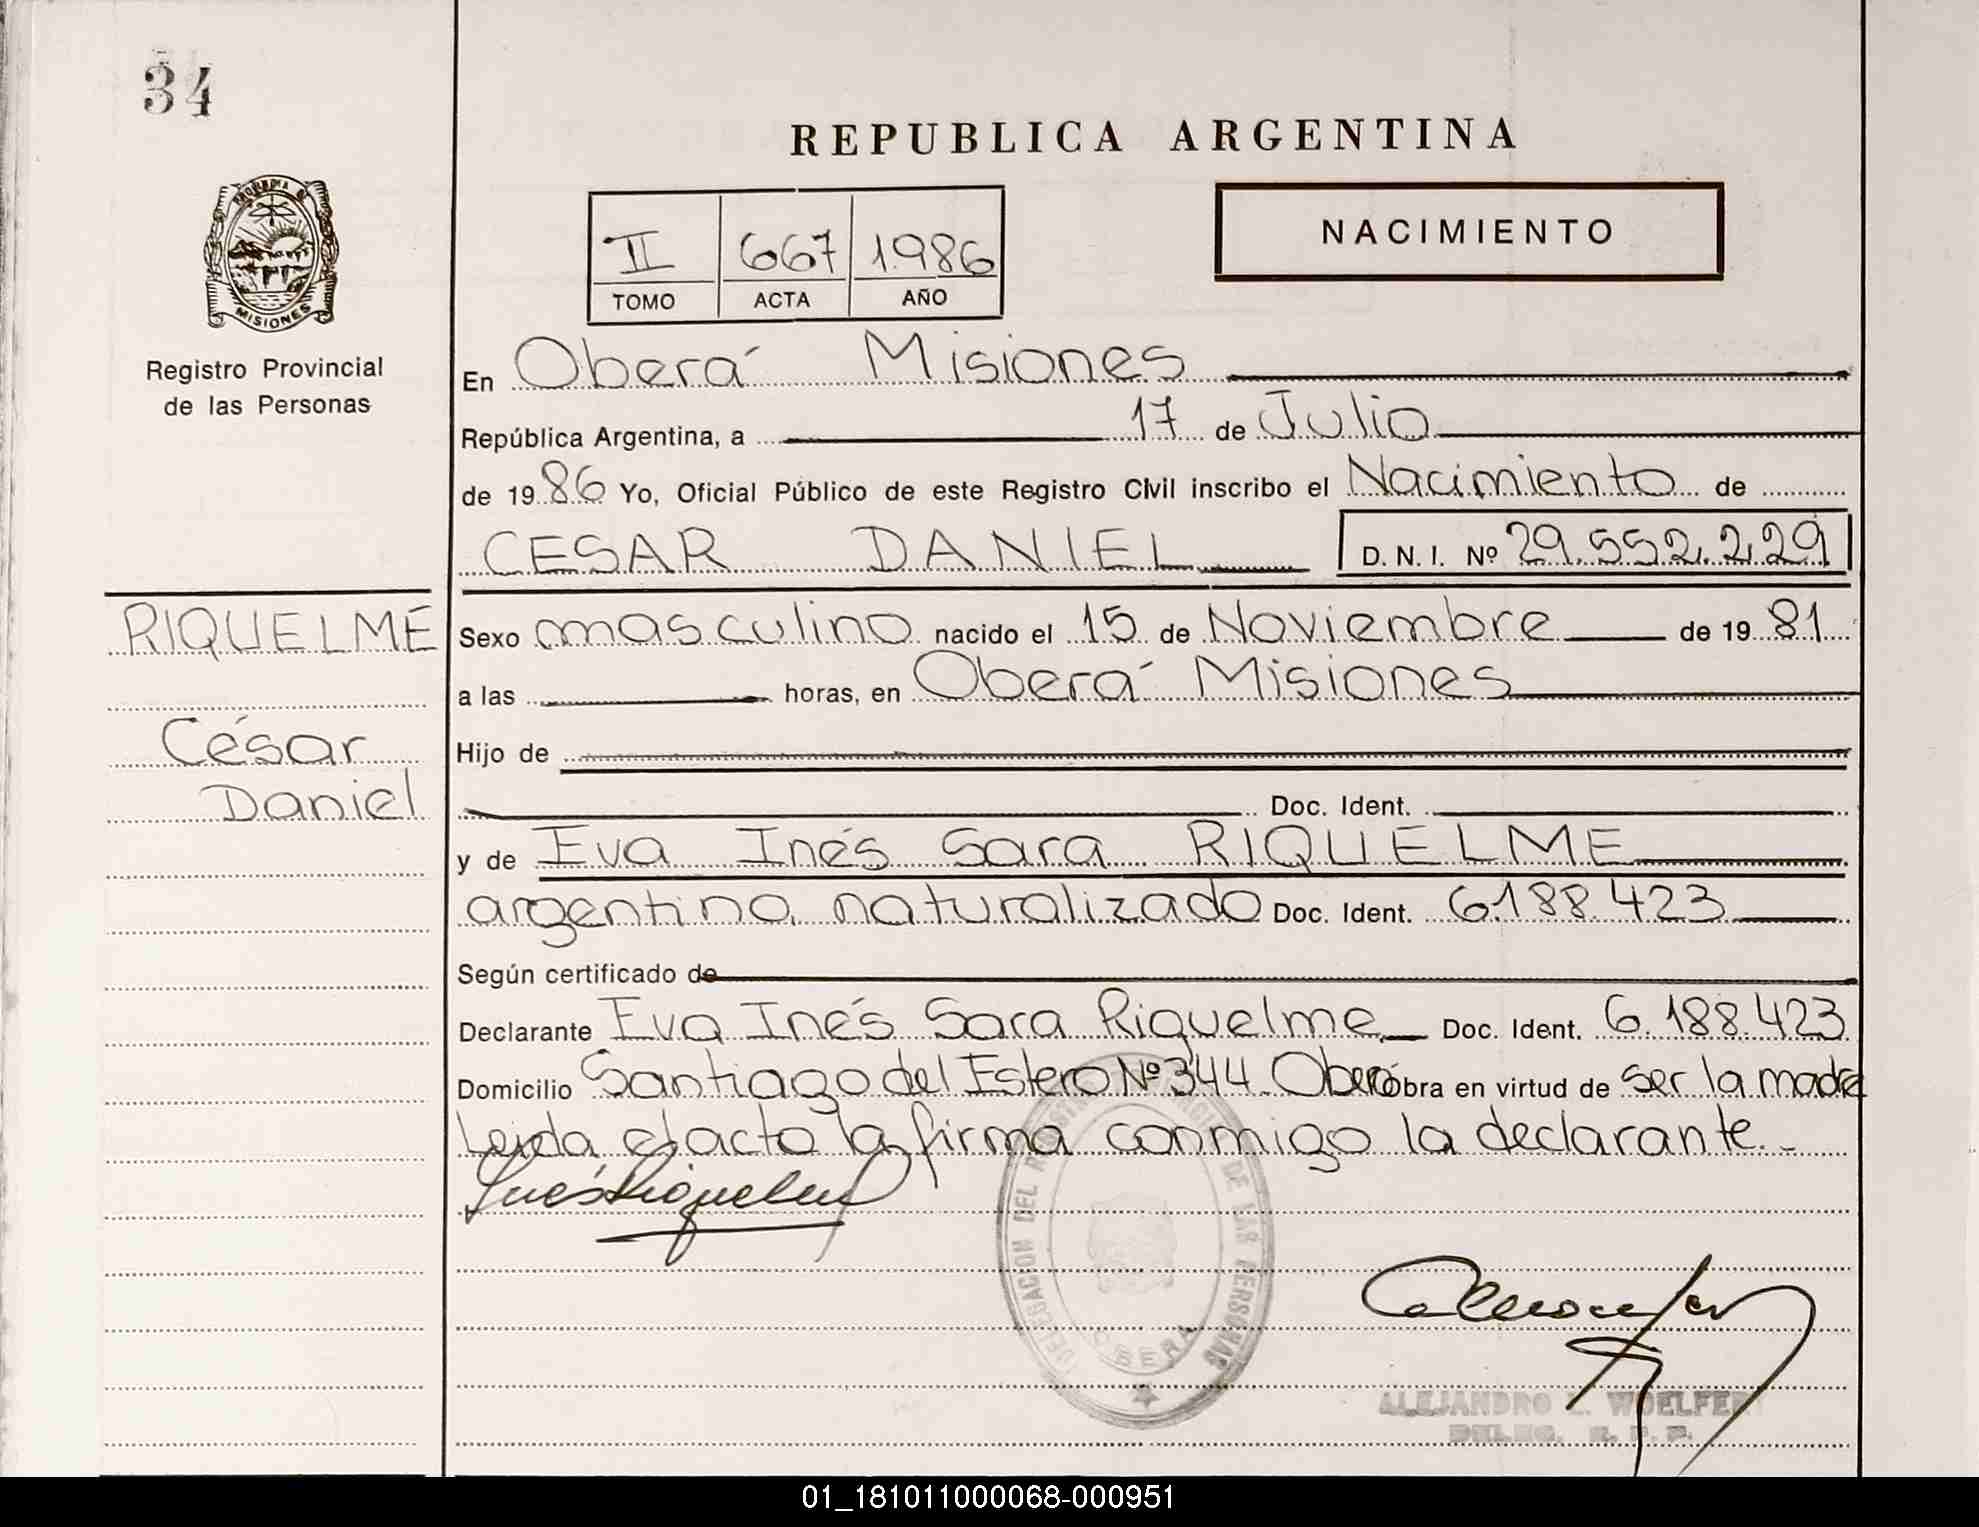 34
REPUBLICA ARGENTINA
II 667 1986
TOMO ACTA AÑO
NACIMIENTO
MISIONES
Registro Provincial
de las Personas
En Oberá Misiones
República Argentina, a 17 de Julio
de 1986 Yo, Oficial Público de este Registro Civil inscribo el Nacimiento de
CESAR DANIEL D. N. I. Nº 29.552.229
RIQUELME
César
Daniel
Sexo masculino nacido el 15 de Noviembre de 1981
a las horas, en Oberá Misiones
Hijo de
Doc. Ident.
y de Eva Inés Sara RIQUELME
argentino naturalizado Doc. Ident. 6.188.423
Según certificado de
Declarante Eva Inés Sara Riquelme Doc. Ident. 6.188.423
Domicilio Santiago del Estero Nº 344 Oberá obra en virtud de ser la madre
Leída el acto la firma conmigo la declarante.-
Inés Riquelme
DELEGACION DEL REGISTRO DE LAS PERSONAS
OBERA
ALEJANDRO WOELFERT
DELEG. R. P. P.
01_181011000068-000951